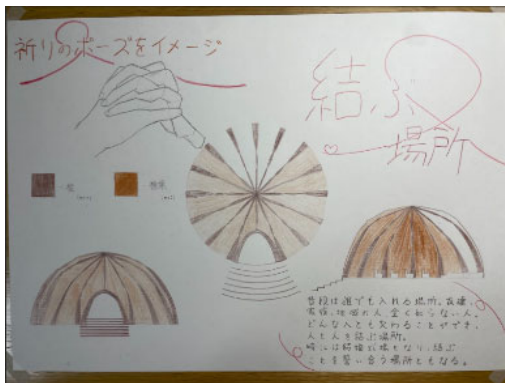 祈りのポーズをイメージ
結ぶ
場所
普段は誰でも入れる場所。友達、
家族、地域の人、全く知らない人。
どんな人とも交わることができ、
人と人を結ぶ場所。
時には結婚式場となり、結ぶ
ことを誓い合う場所ともなる。